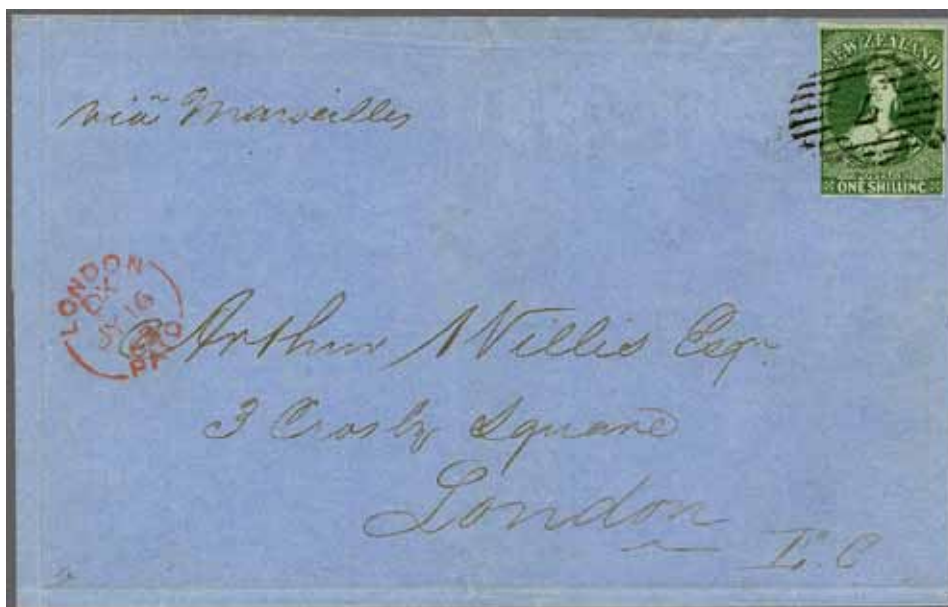 NEW ZEALAND
POSTAGE
ONE SHILLING
via Marseilles
LONDON
16
PAID
Arthur Willis Esqr
3 Crosby Square
London
E.C